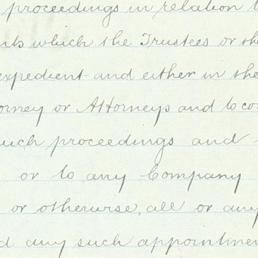 proceedings in relation t
which the Trustees or the
expedient and either in the
orney or Attorneys and to co
such proceedings and
or to any Company
or otherwise, all or any
d any such appointmen